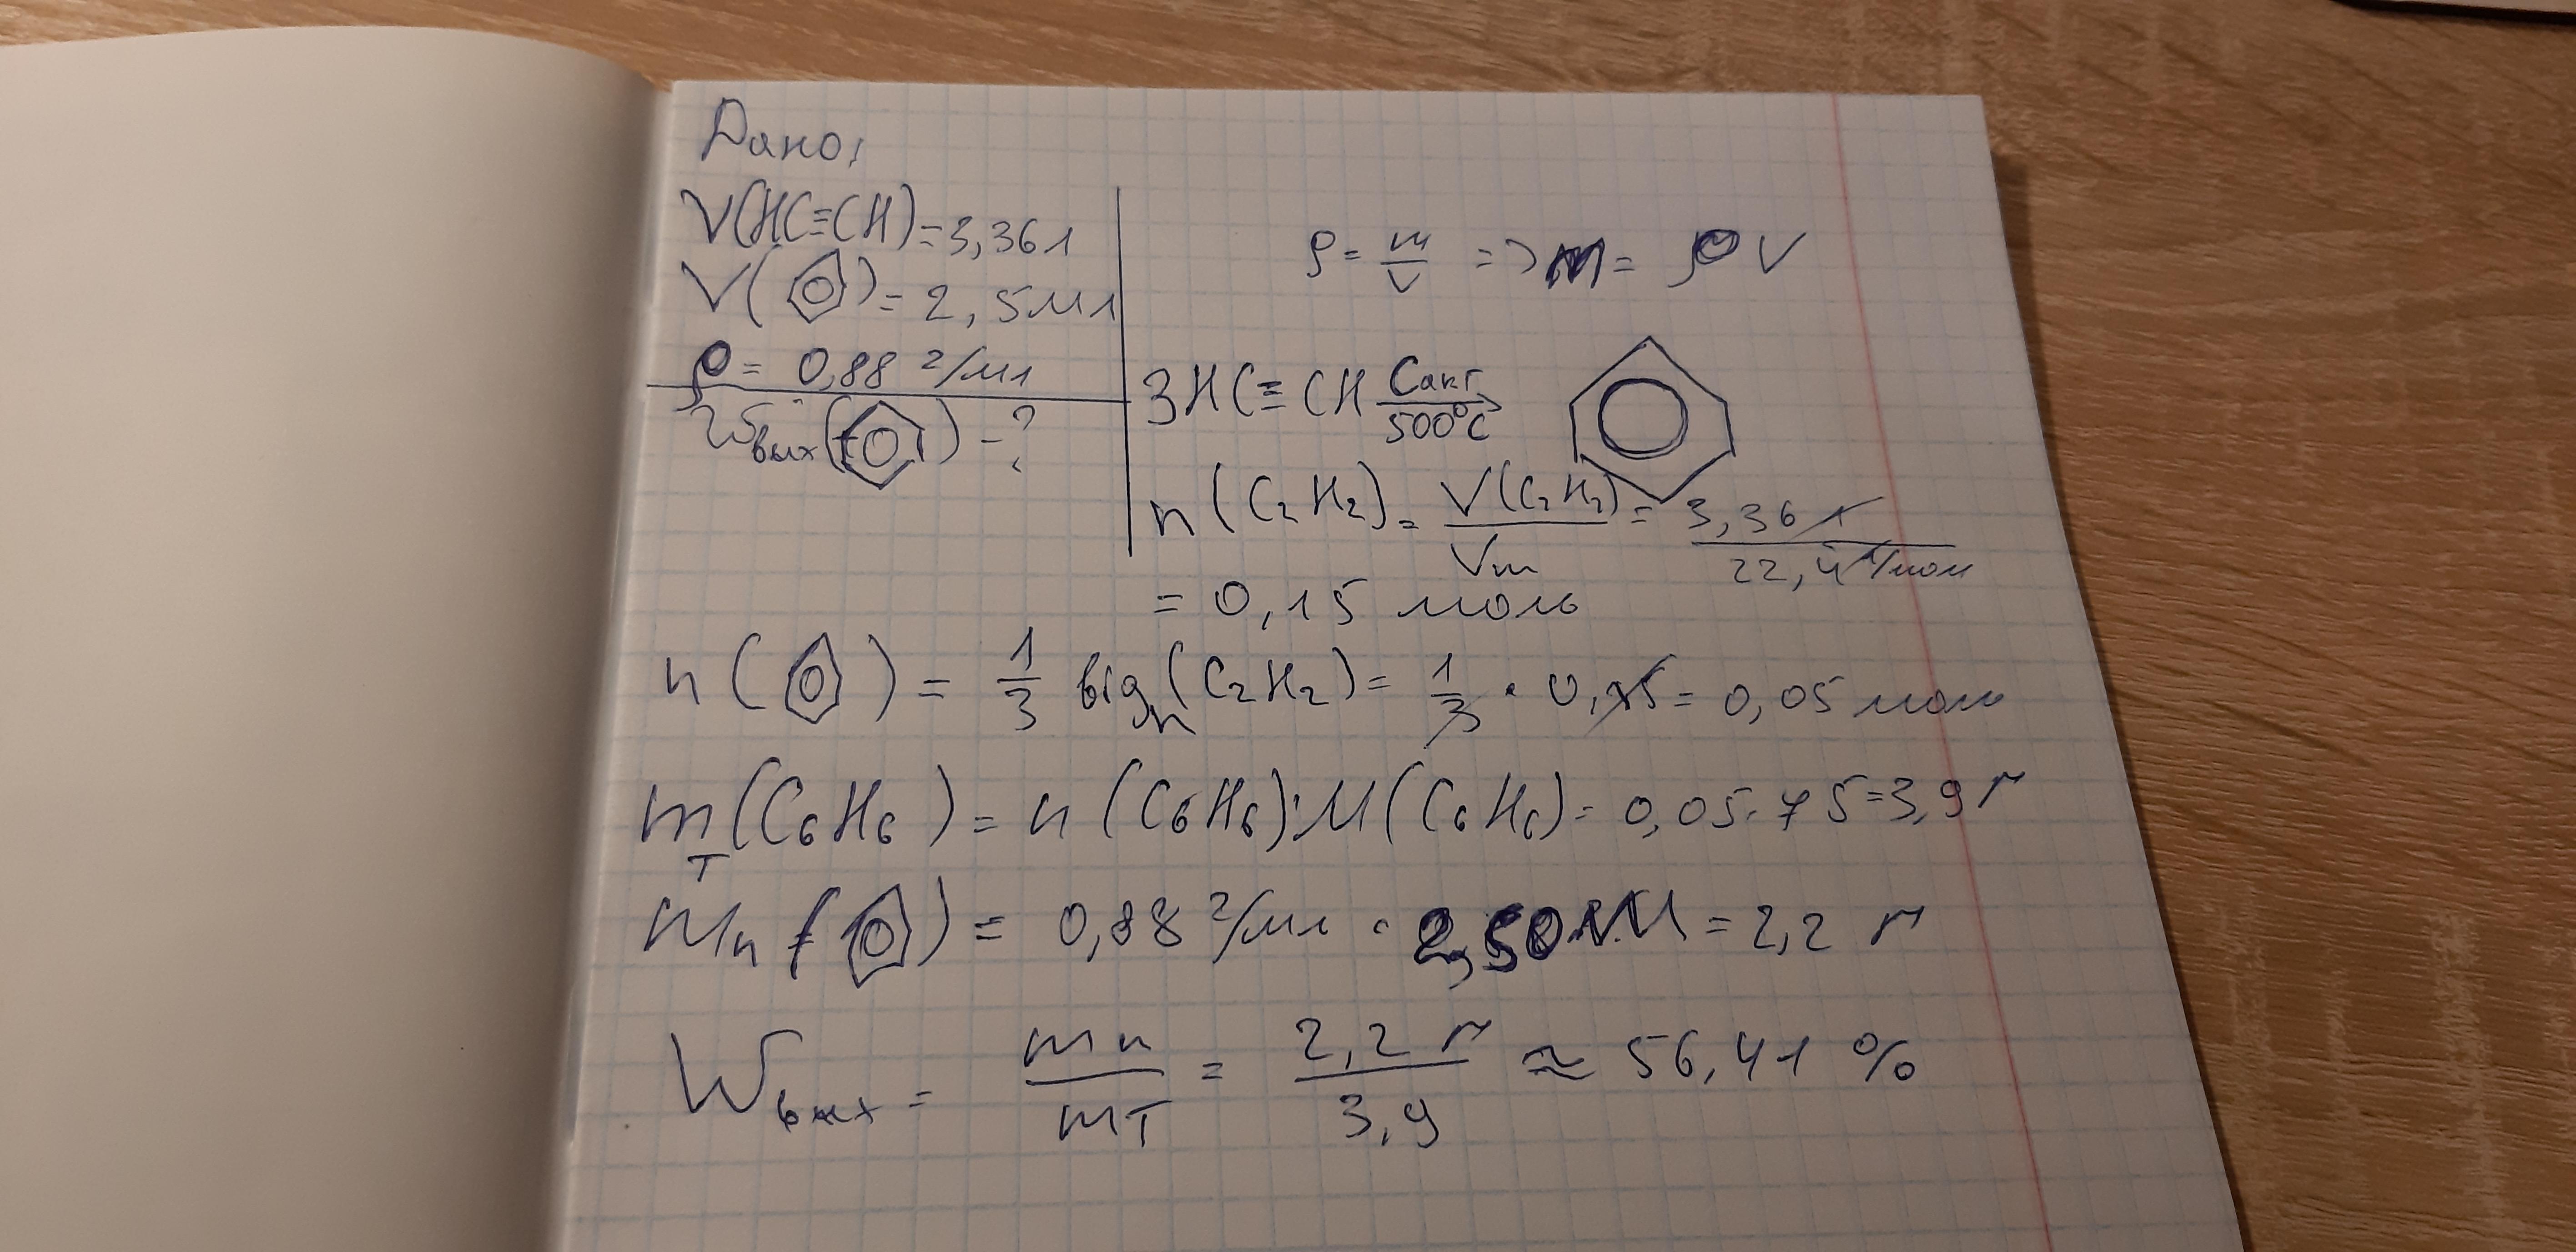 Дано:
V(HC≡CH)=3,36л
V(⌬)=2,5мл
ρ= 0,88 г/мл
Wвых(⌬)-?
ρ= m/V => m= ρV
3HC≡CH Cакт 500°C → ⌬
n(C₂H₂)= V(C₂H₂)/Vm = 3,36 л/22,4 л/моль
= 0,15 моль
n(⌬)= 1/3 від n(C₂H₂)= 1/3 · 0,15= 0,05 моль
mт(C₆H₆)= n(C₆H₆)·M(C₆H₆)= 0,05·75=3,9 г
mп(⌬)= 0,88 г/мл · 2,50мл=2,2 г
Wвых= mп/mт = 2,2 г/3,9 ≈ 56,41 %